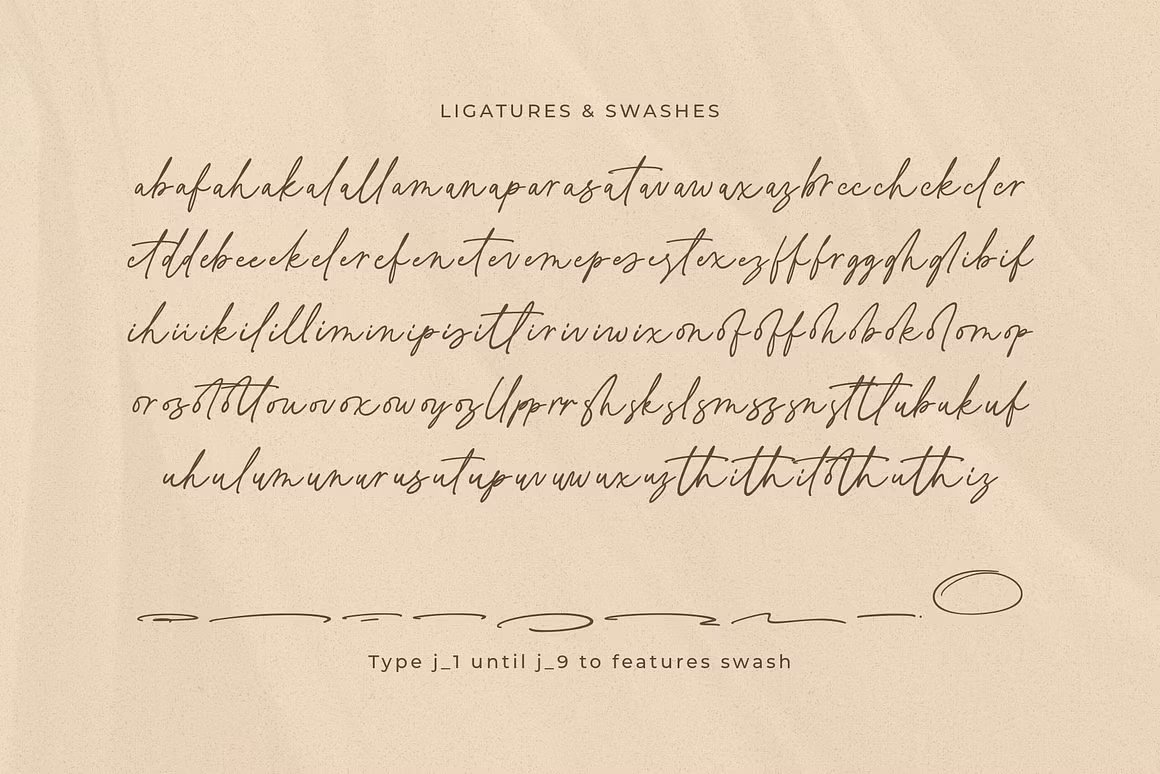 LIGATURES & SWASHES
abafahakalallamanaparasatavawaxazbrccchckclcr
ctddebeeekelerefenetevemepesestexezfffrggghglibif
ihiiikililliminipisitltiririviwixonofoffohobokolomop
orosotoltouovoxowoyozllpprrshskslsmszsnstttlubukuf
uhulumunurusutupuvuwuxuzthithitothuthiz
Type j_1 until j_9 to features swash